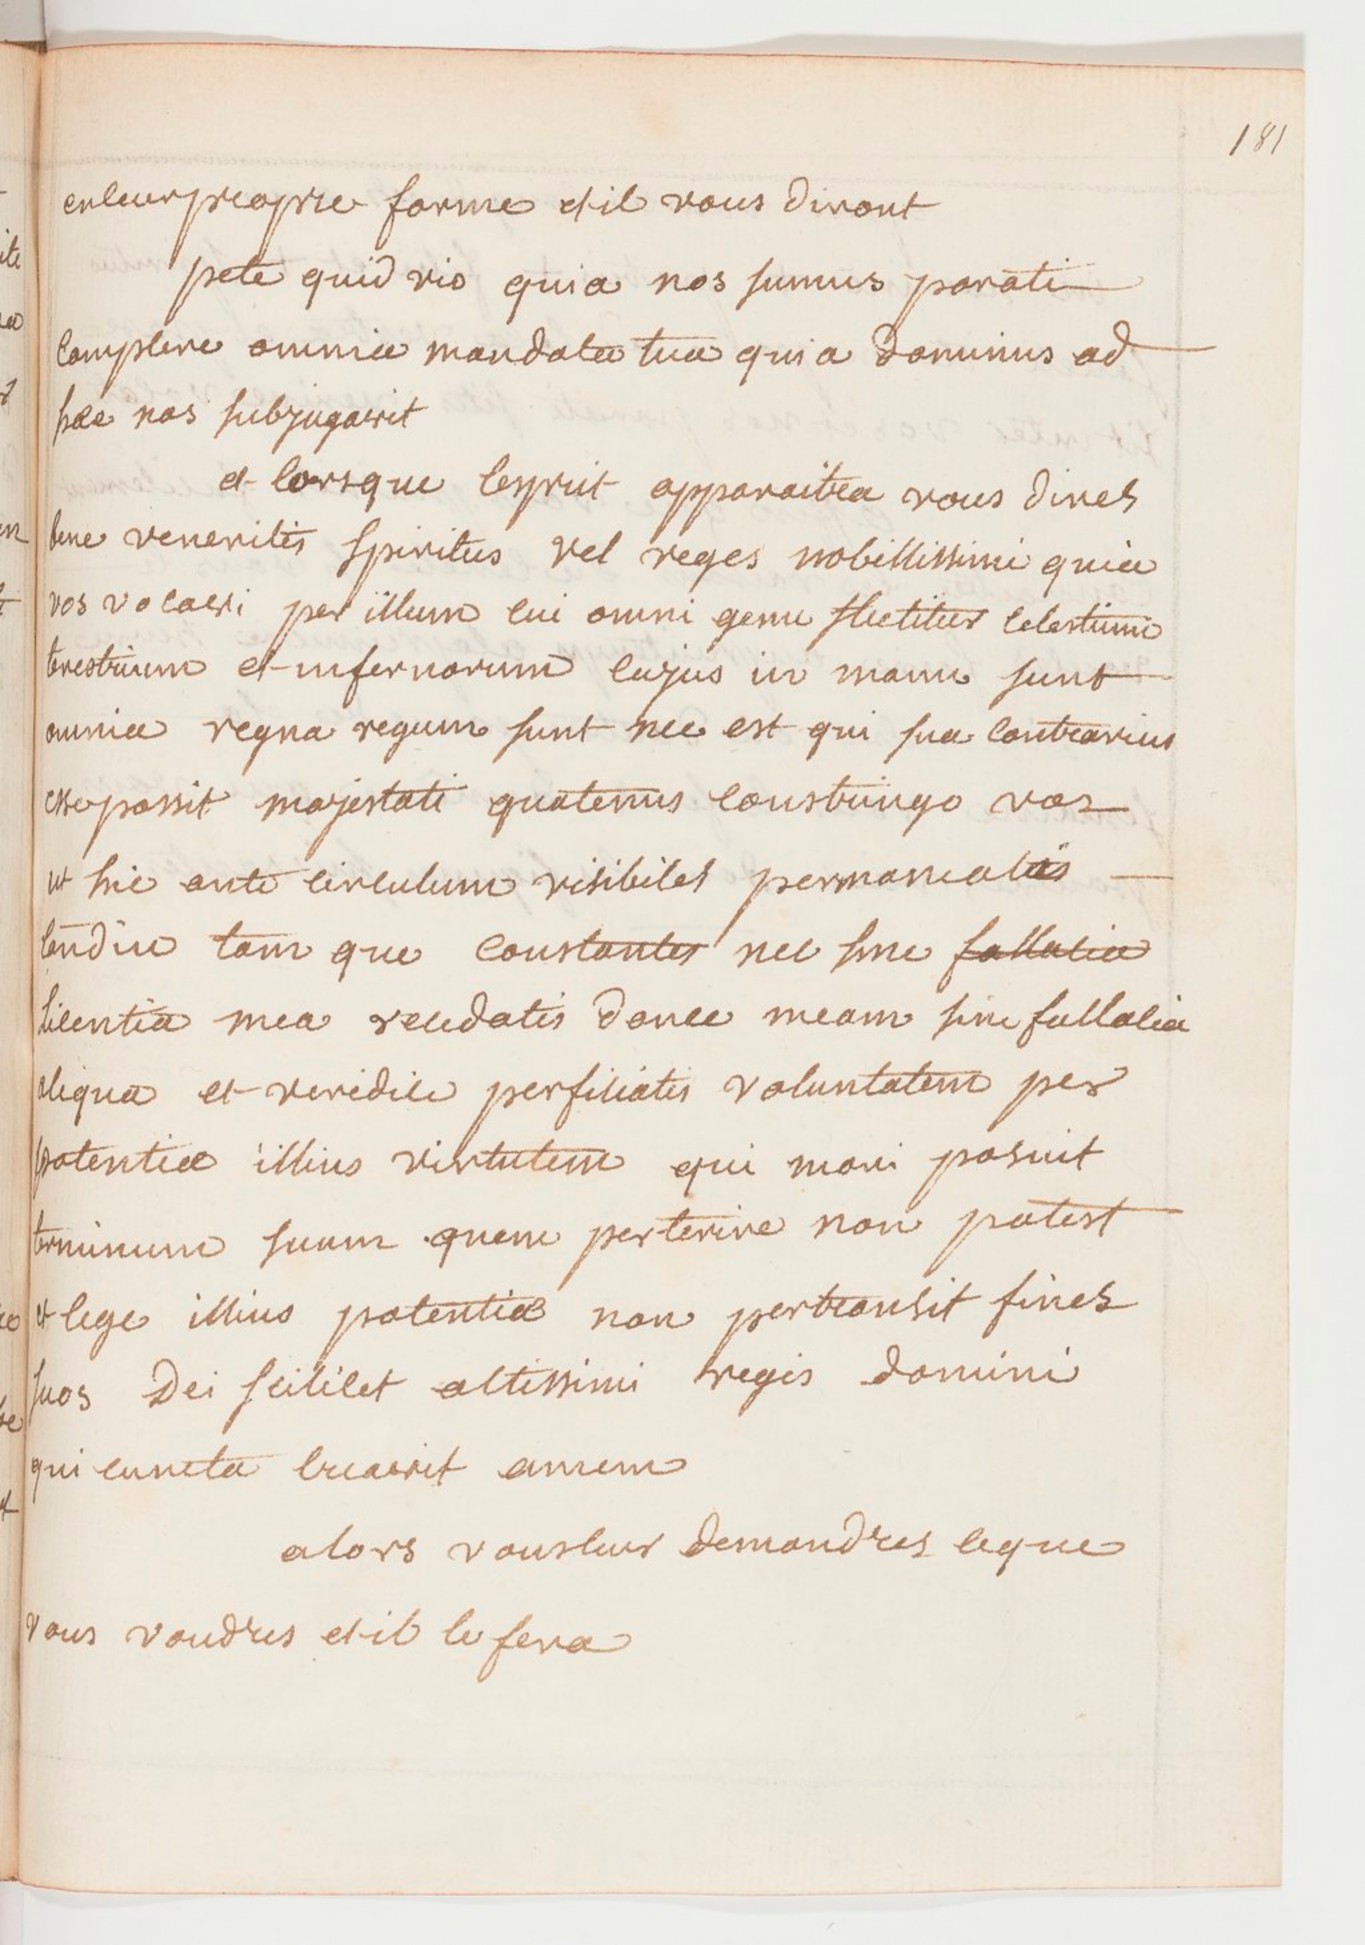 181
en leur propre forme et il vous diront
pete quid vio quia nos sumus parati
complere omnia mandata tua quia dominus ad
hæc nos subjugavit
et lorsque lesprit apparaitra vous dires
bene veneritis spiritus vel reges nobillissimi quia
vos vocavi per illum cui omni genu flectitur celestium
terestrium et infernorum cujus in manu sunt
omnia regna regum sunt nec est qui sua contrarius
esse possit majestati quatenus constringo vos
ut hic ante circulum visibiles permaneatis
tandiu tam que constantes nec sine fallacia
licentia mea recedatis donec meam sine fallacia
aliqua et veridice perficiatis voluntatem per
potentiæ illius virtutem qui mari posuit
terminum suum quem perterire non potest
et lege illius potentiæ non pertransit fines
suos Dei scilicet altissimi regis domini
qui cuncta creavit amem
alors vous leur demandres ceque
vous voudres et il le fera